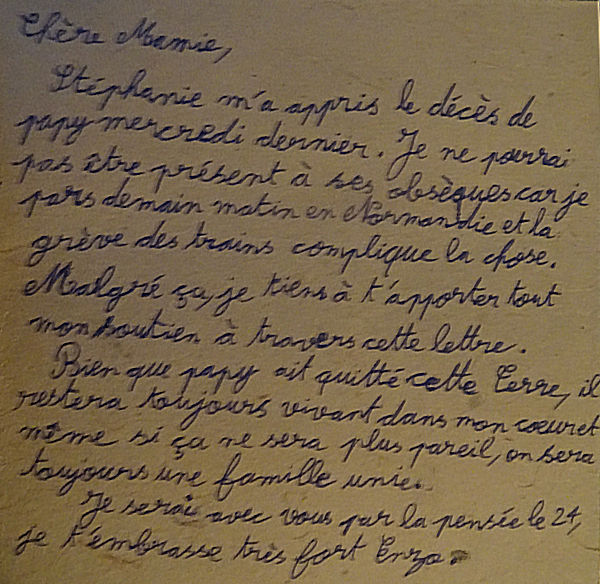 Chère Mamie,
Stéphanie m'a appris le décès de
papy mercredi dernier. Je ne pourrai
pas être présent à ses obsèques car je
pars demain matin en Normandie et la
grève des trains complique la chose.
Malgré ça, je tiens à t'apporter tout
mon soutien à travers cette lettre.
Bien que papy ait quitté cette Terre, il
restera toujours vivant dans mon cœur et
même si ça ne sera plus pareil, on sera
toujours une famille unie.
Je serai avec vous par la pensée le 24,
je t'embrasse très fort Enzo.